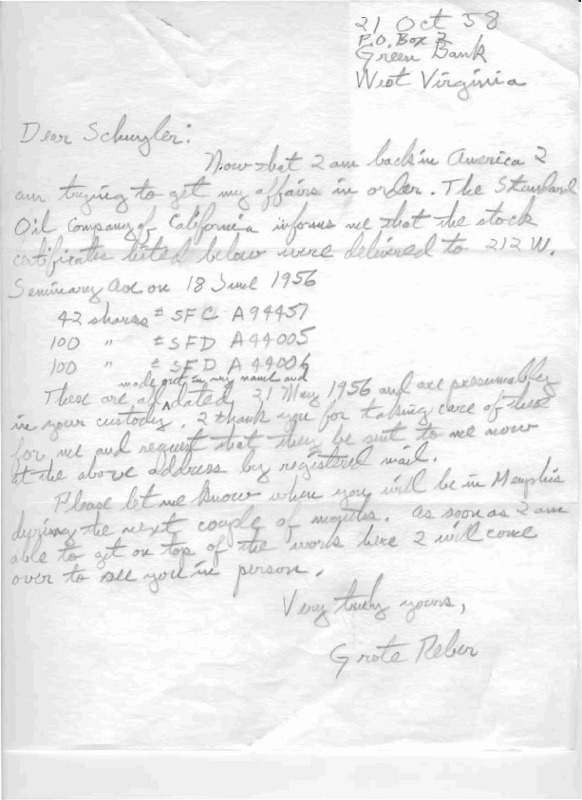 21 Oct 58
P.O. Box 2
Green Bank
West Virginia
Dear Schuyler:
Now that I am back in America I
am trying to get my affairs in order. The Standard
Oil Company of California informs me that the stock
certificates listed below were delivered to 212 W.
Seminary Ave on 18 June 1956
42 shares # SFC A94457
100 " # SFD A44005
100 " # SFD A44006
made out in my name and
These are all dated, 31 May 1956 and are presumably
in your custody. I thank you for taking care of these
for me and request that they be sent to me now
at the above address by registered mail.
Please let me know when you will be in Memphis
during the next couple of months. As soon as I am
able to get on top of the work here I will come
over to see you in person.
Very truly yours,
Grote Reber